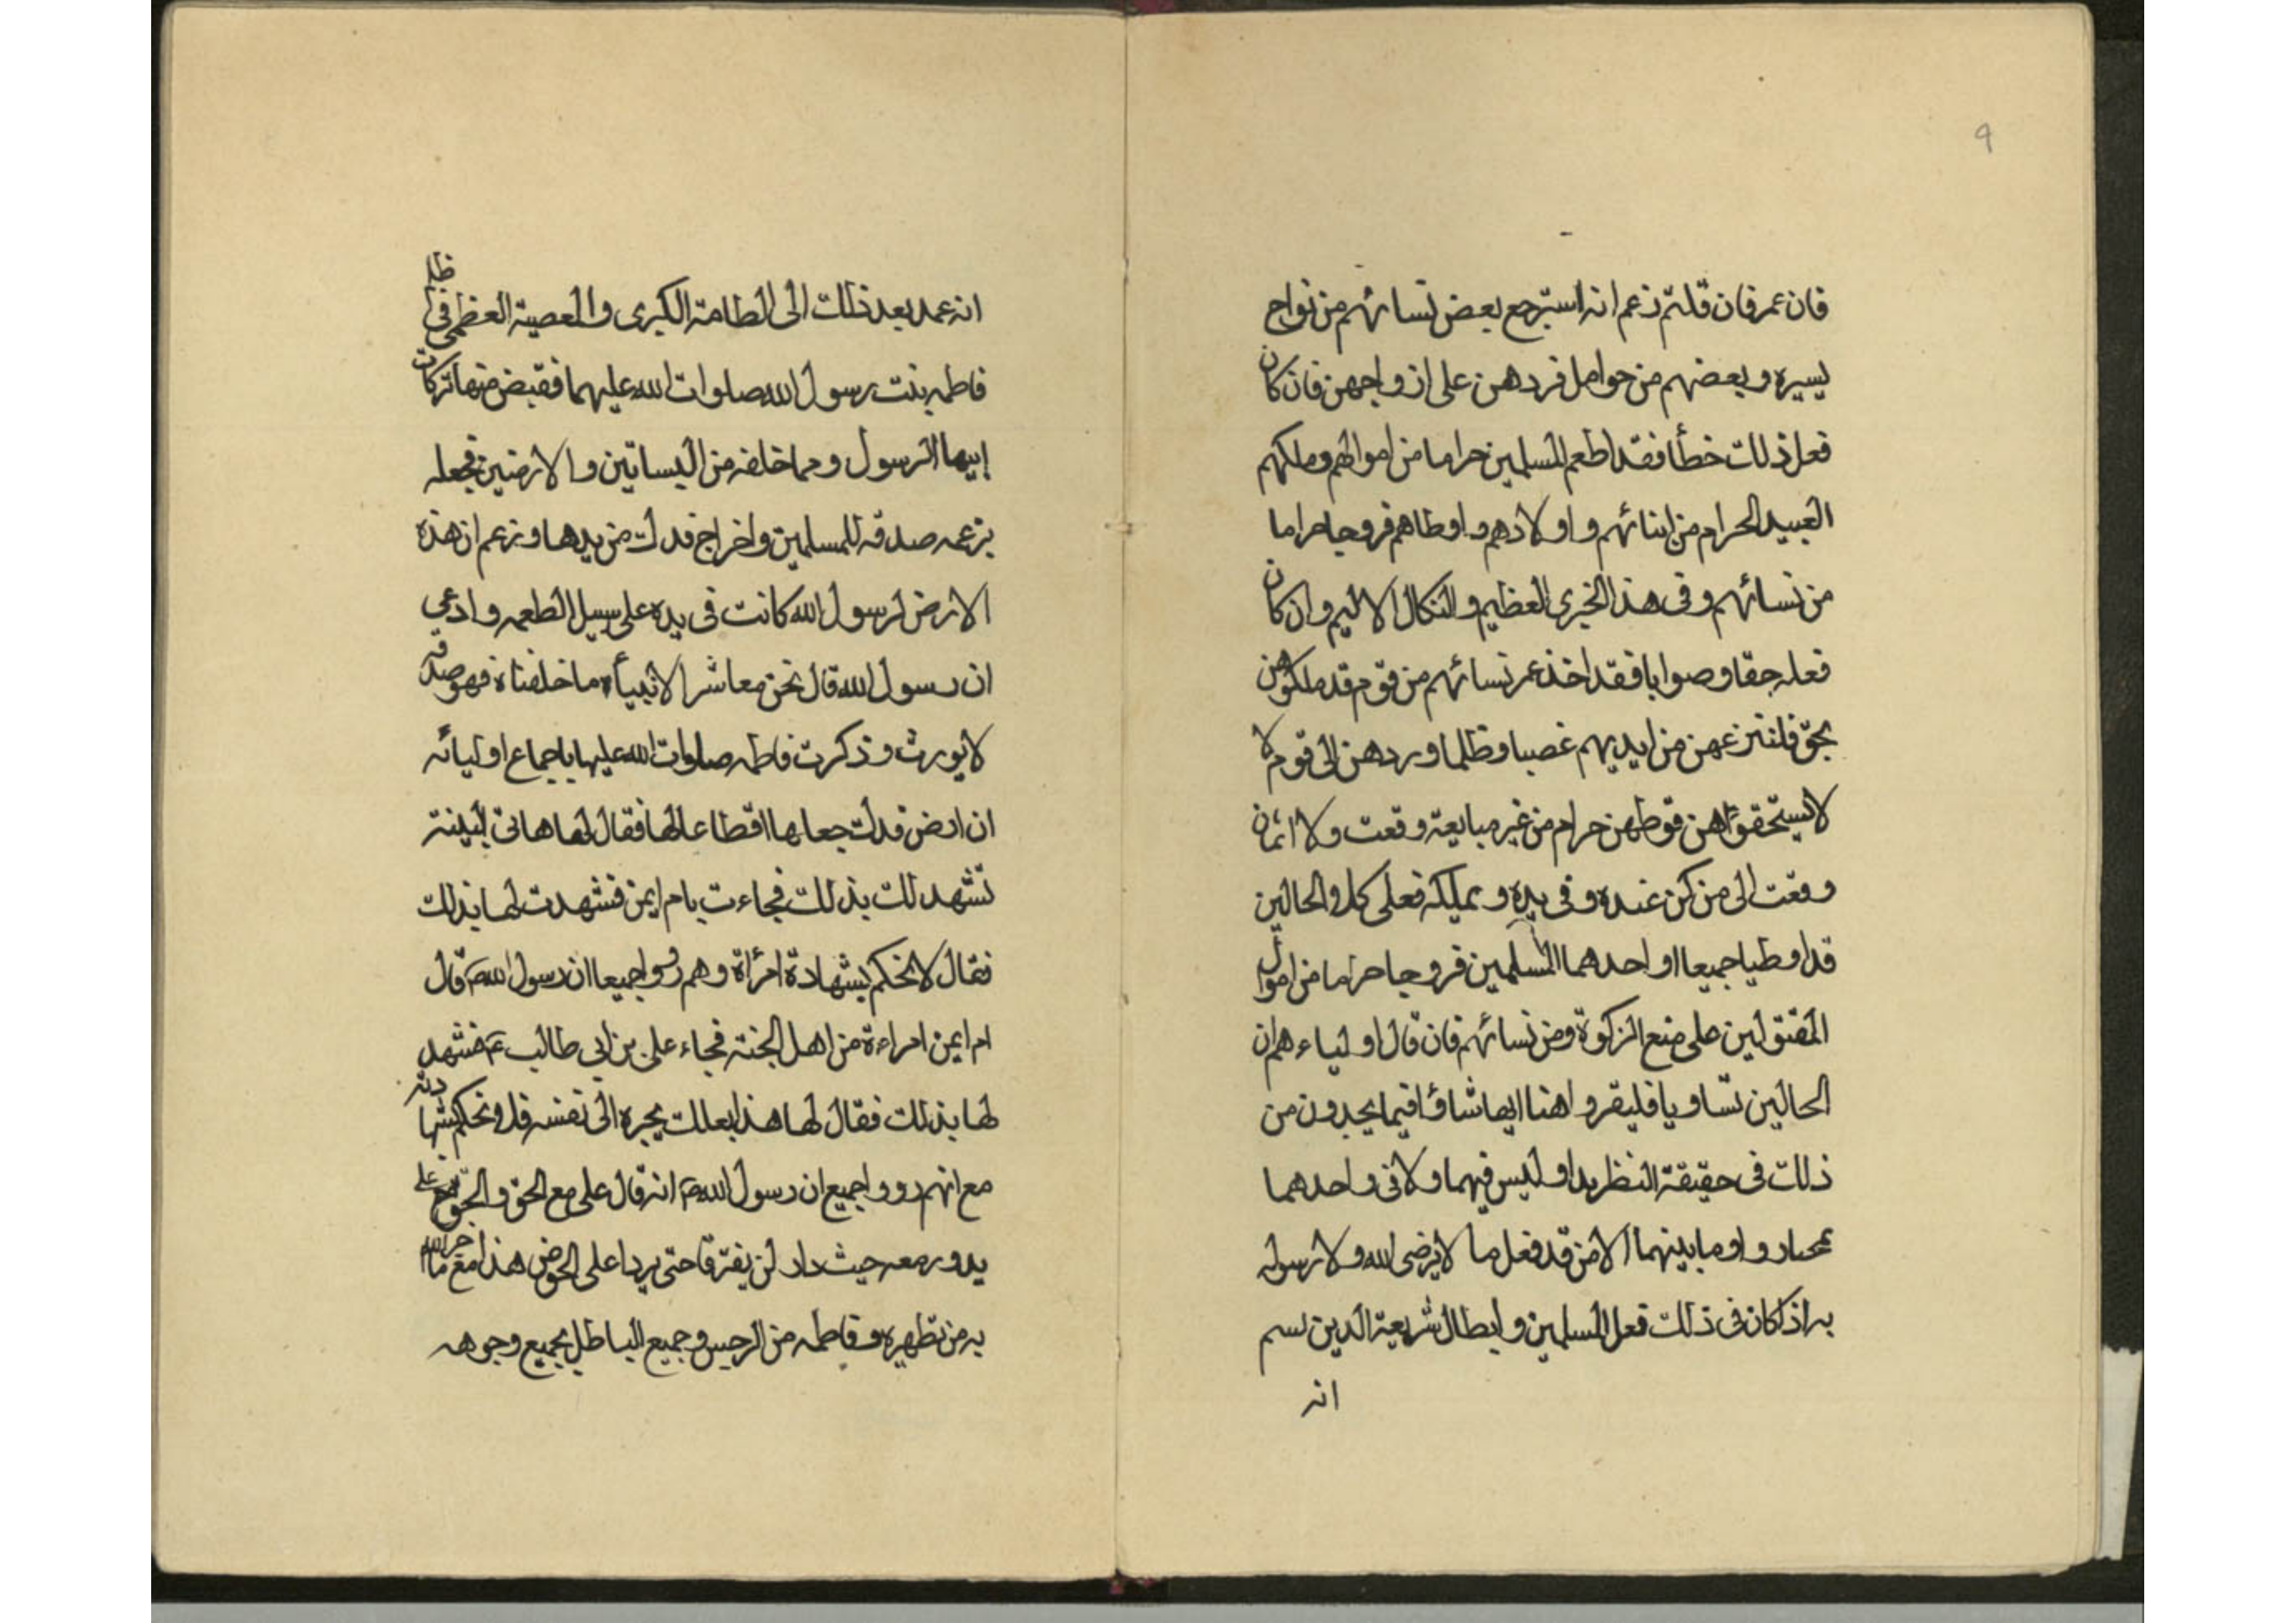 9
فان عمر فان قلتم زعم انه استرجع بعض نسائهم من نواح
يسيره وبعضهم من حوامل فردهن على ازواجهن فان كان
فعل ذلك خطأ فقد اطعم المسلمين حراما من اموالهم وملكهم
العبيد الحرام من ابنائهم واولادهم واوطاهم فروجا حراما
من نسائهم وفى هذا الخزى العظيم والنكال الاليم وان كان
فعله حقا وصوابا فقد اخذ عمر نسائهم من قوم قد ملكوهن
بحق فانتزعهن من ايديهم غصبا وظلما وردهن الى قوم لا
لا يستحقونهن فوطهن حرام من غير مبايعة وقعت ولا اثمان
وقعت الى من كن عنده وفى يده ويملكه فعلى كلا الحالين
قد اوطيا جميعا او احدهما المسلمين فروجا حراما من اموال
المقتولين على منع الزكوة ومن نسائهم فان قال اولياءهم ان
الحالين تساويا فليقروا هنا ايها شاؤا فيما يجدون من
ذلك فى حقيقة النظر بدا وليس فيهما ولا فى واحدهما
وما بينهما الا من قد فعل ما لا يرضى الله ولا رسوله
به اذ كان فى ذلك فعل المسلمين وابطال شريعة الدين نسم
انه
انه عمد بعد ذلك الى الطامة الكبرى والمعصية العظمى فى ظلم
فاطمه بنت رسول الله صلوات الله عليهما فقبض منها تركات
ابيها الرسول ومما خلفه من البساتين والارضين فجعله
بزعمه صدقه للمسلمين واخراج فدك من يدها وزعم ان هذه
الارض لرسول الله كانت فى يده على سبيل الطعمه وادعى
ان رسول الله قال نحن معاشر الانبيآء ما خلفناه فهو صدقه
لا يورث وذكرت فاطمه صلوات الله عليها باجماع اوليائه
ان ارض فدك جعلها اقطاعا لها فقال لها هاتى ببينة
تشهد لك بذلك فجاءت بام ايمن فشهدت لها بذلك
فقال لا نحكم بشهادة امرأة وهم رووا جميعا ان رسول الله ص قال
ام ايمن امراءة من اهل الجنة فجاء على بن ابى طالب ع فشهد
لها بذلك فقال لها هذا بعلك يجره الى نفسه فلا نحكم بشهادته
مع انهم رووا جميع ان رسول الله ص انه قال على مع الحق والحق مع على
يدور معه حيث دار لن يفترقا حتى يردا على الحوض هذا مع ما اخبر الله
به من تطهيره وفاطمه من الرجس وجميع الباطل بجميع وجوهه